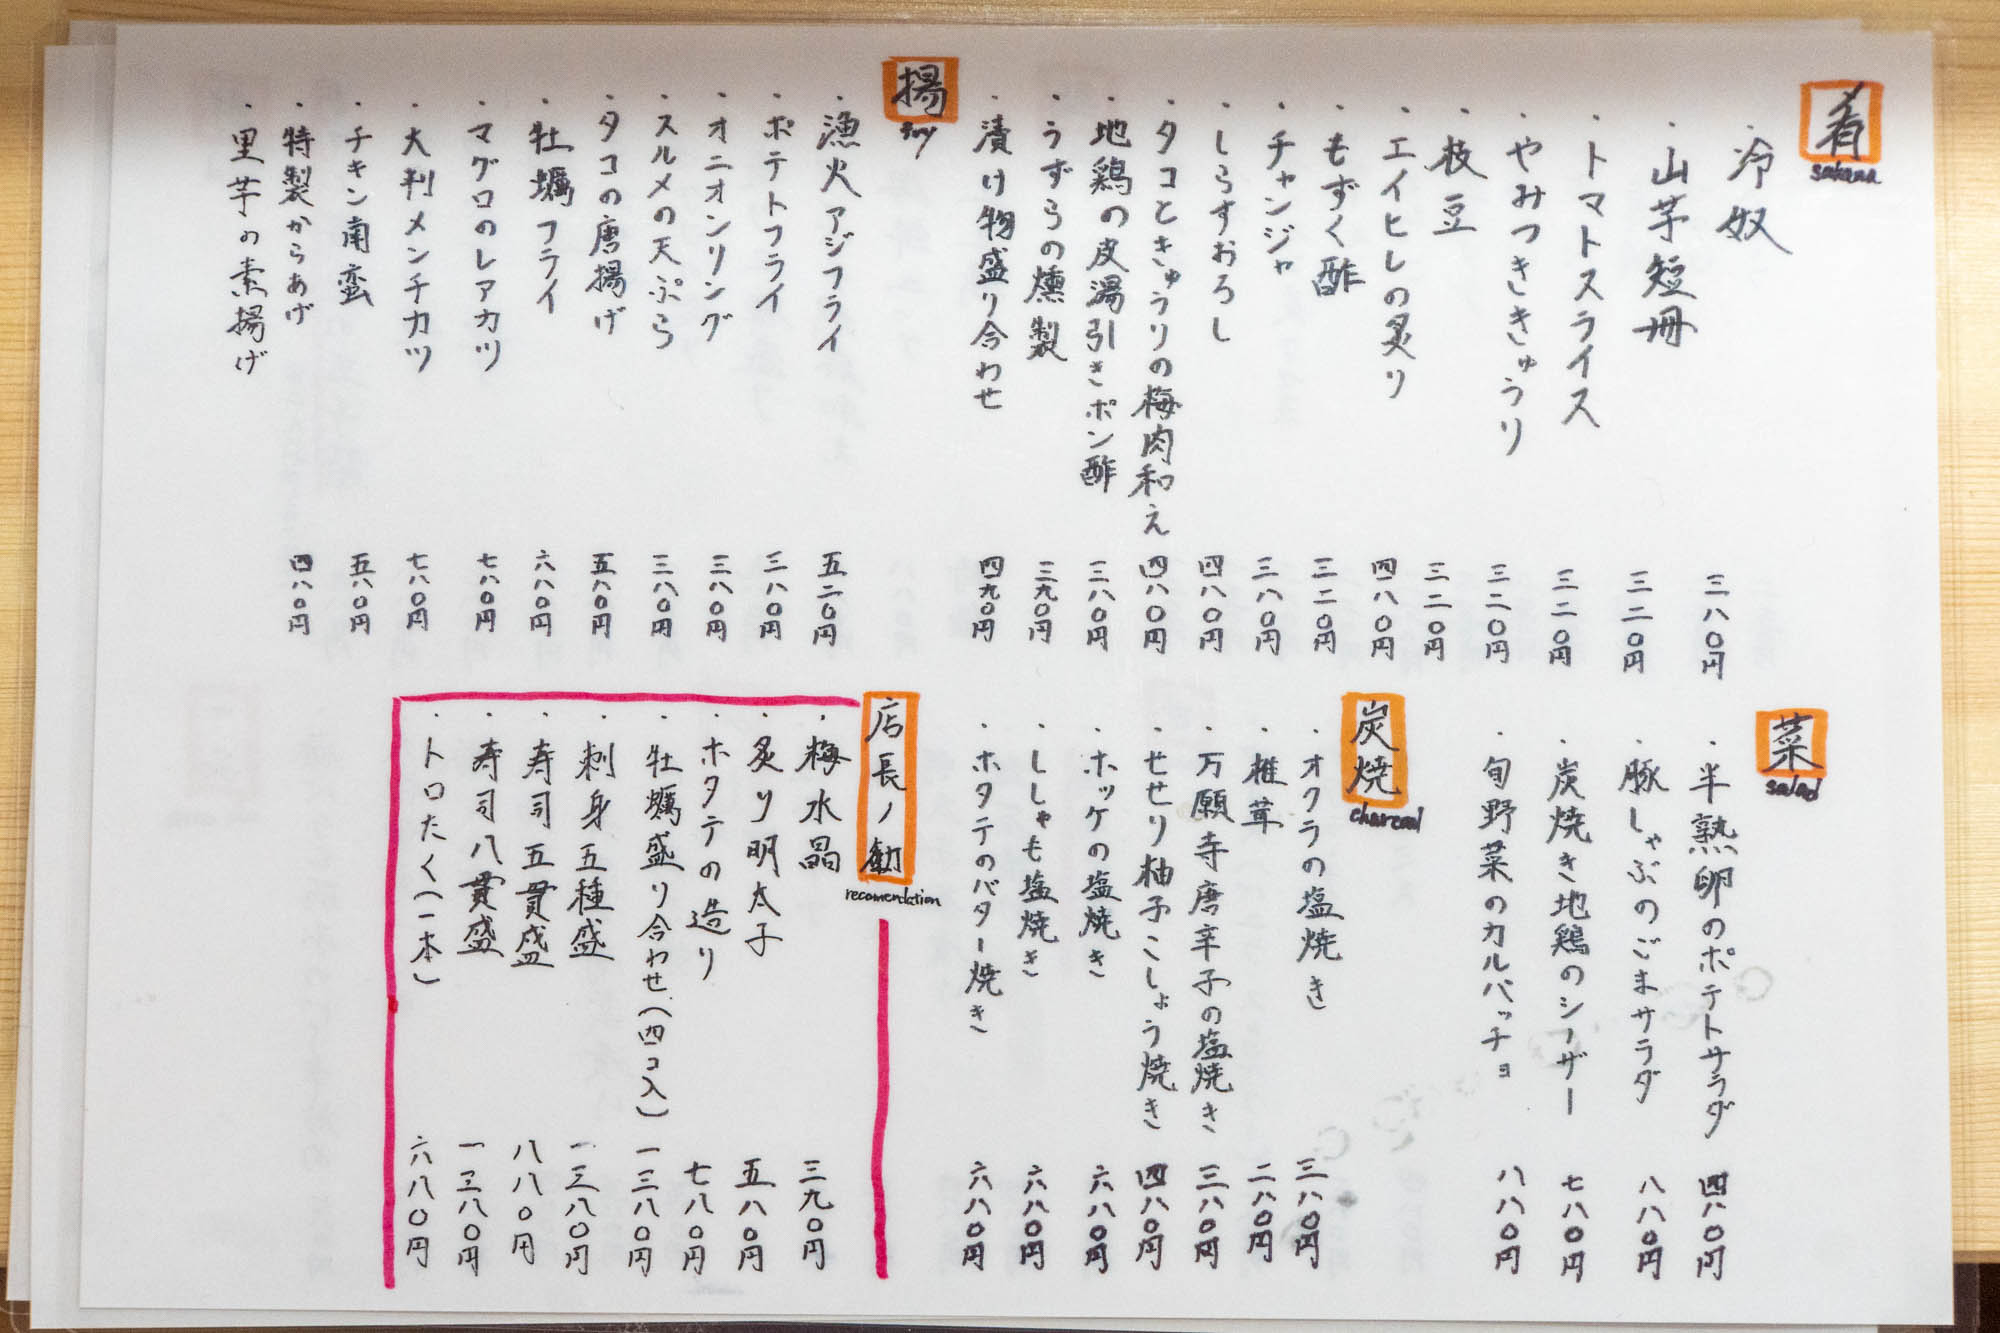 肴
sakana
・冷奴 三八〇円
・山芋短冊 三二〇円
・トマトスライス 三二〇円
・やみつききゅうり 三二〇円
・枝豆 三二〇円
・エイヒレの炙り 四八〇円
・もずく酢 三二〇円
・チャンジャ 三八〇円
・しらすおろし 四八〇円
・タコときゅうりの梅肉和え 四八〇円
・地鶏の皮湯引きポン酢 三八〇円
・うずらの燻製 三九〇円
・漬け物盛り合わせ 四九〇円
揚
fry
・漁火アジフライ 五二〇円
・ポテトフライ 三八〇円
・オニオンリング 三八〇円
・スルメの天ぷら 三八〇円
・タコの唐揚げ 五八〇円
・牡蠣フライ 六八〇円
・マグロのレアカツ 七八〇円
・大判メンチカツ 七八〇円
・チキン南蛮 五八〇円
・特製からあげ 四八〇円
・里芋の素揚げ
菜
salad
・半熟卵のポテトサラダ 四八〇円
・豚しゃぶのごまサラダ 八八〇円
・炭焼き地鶏のシーザー 七八〇円
・旬野菜のカルパッチョ 八八〇円
炭焼
charcoal
・オクラの塩焼き 三八〇円
・椎茸 二八〇円
・万願寺唐辛子の塩焼き 三八〇円
・せせり柚子こしょう焼き 四八〇円
・ホッケの塩焼き 六八〇円
・ししゃも塩焼き 六八〇円
・ホタテのバター焼き 六八〇円
店長ノ勧
recomendation
・梅水晶 三九〇円
・炙り明太子 五八〇円
・ホタテの造り 七八〇円
・牡蠣盛り合わせ(四コ入) 一三八〇円
・刺身五種盛 一三八〇円
・寿司五貫盛 八八〇円
・寿司八貫盛 一三八〇円
・トロたく(一本) 六八〇円